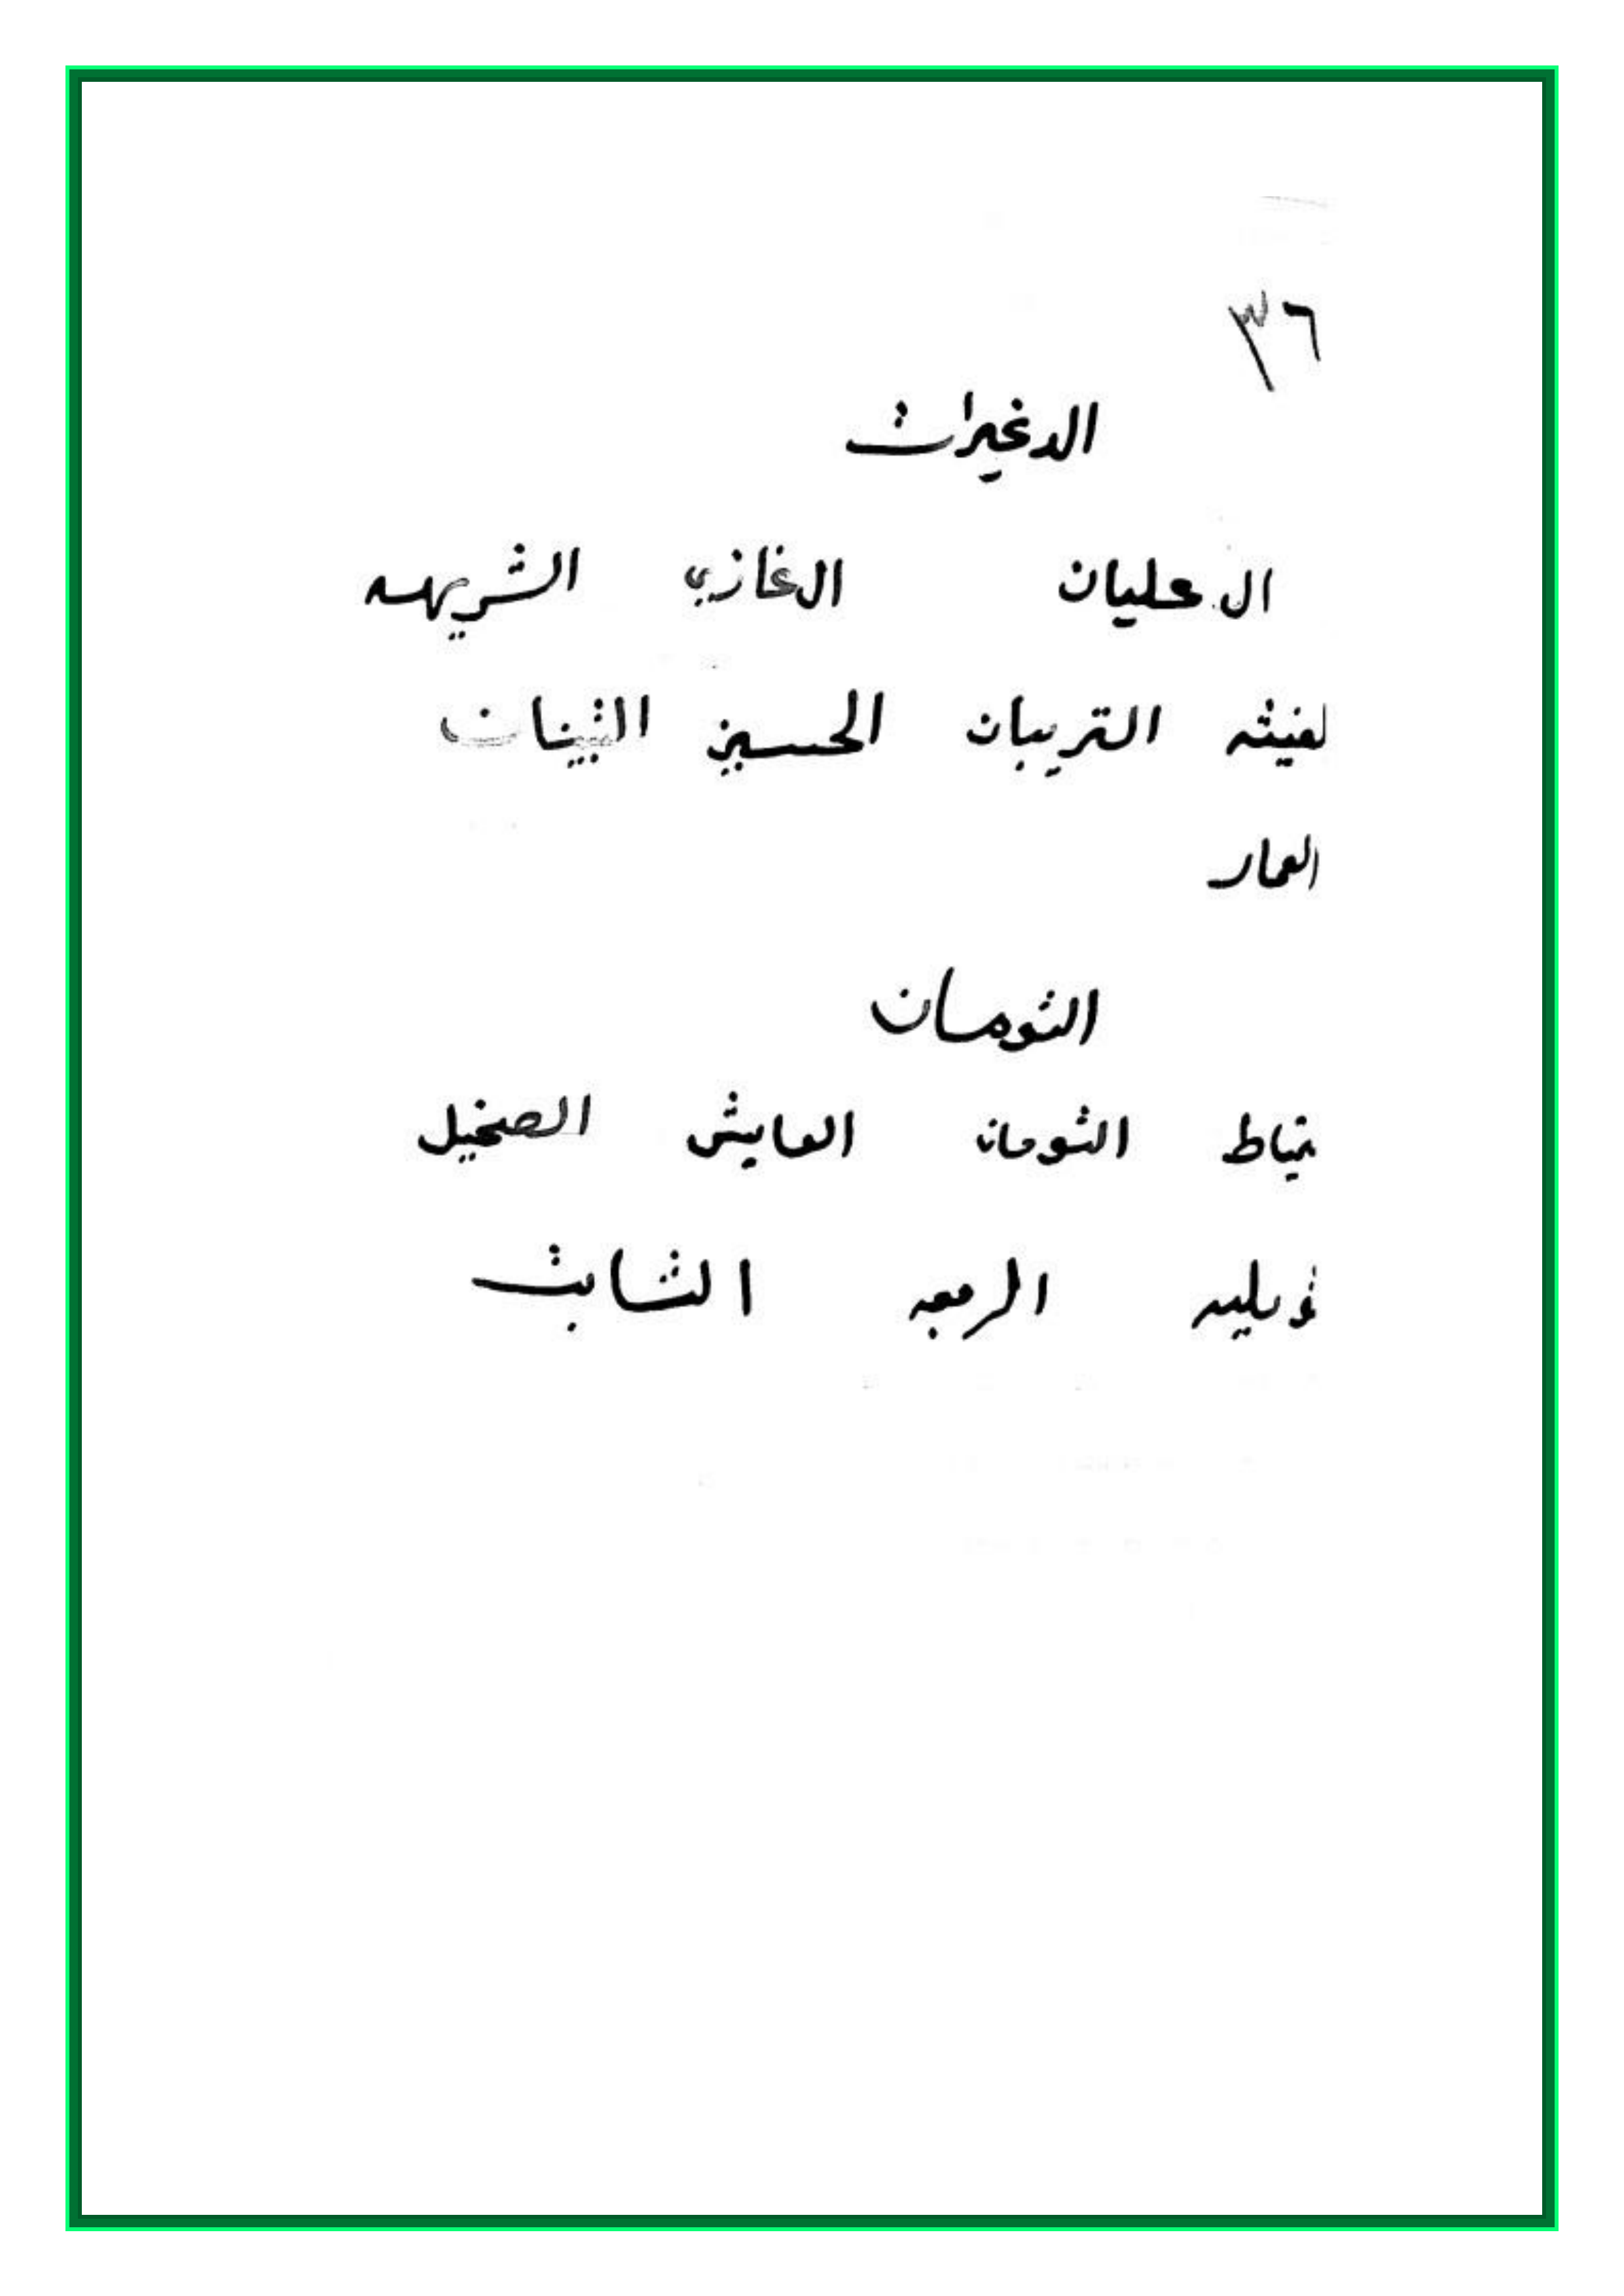 ٣٦
الدغيرات
ال عليان الغازي الشريهه
لغيثه التريبان الحسين الثنيان
العمار
التومان
التومان العايش الصخيل
الرمعه الثابت